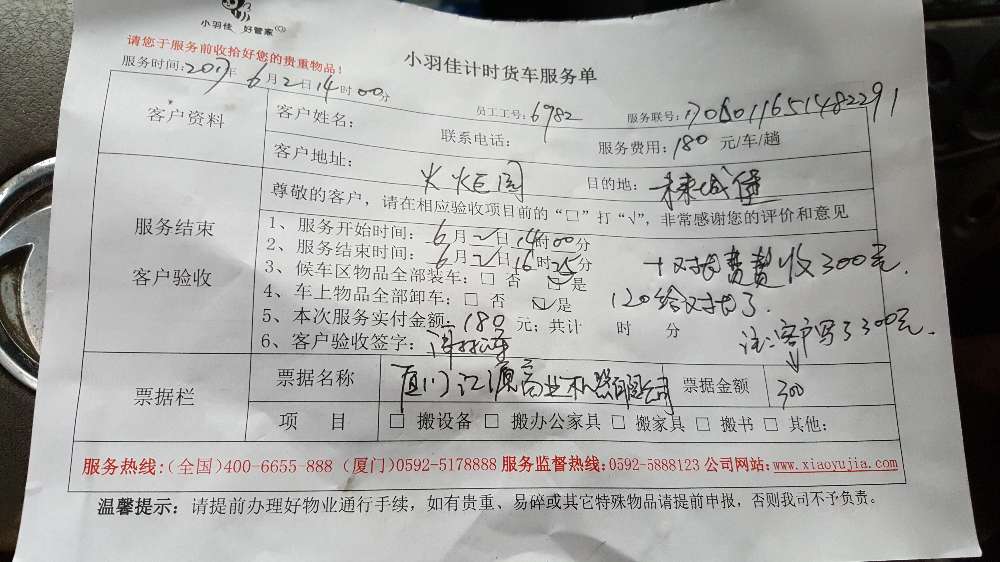 小羽佳 好管家
请您于服务前收拾好您的贵重物品!
小羽佳计时货车服务单
服务时间:2017年6月2日14时00分
员工工号:6982
服务联号:1706011651482291
客户资料
客户姓名:
联系电话:
服务费用:180 元/车/趟
客户地址:火炬园
目的地:未来城堡
服务结束
客户验收
尊敬的客户,请在相应验收项目前的“□”打“√”,非常感谢您的评价和意见
1、服务开始时间:6月2日14时00分
2、服务结束时间:6月2日16时25分
3、候车区物品全部装车:□ 否 ☑是
4、车上物品全部卸车:□ 否 ☑是
5、本次服务实付金额:180元;共计 时 分
6、客户验收签字:
收300元.
120给
注:客户写了300元.
票据栏
票据名称
票据金额
300
项 目
□ 搬设备 □ 搬办公家具 □ 搬家具 □ 搬书 □ 其他:
服务热线:(全国)400-6655-888 (厦门)0592-5178888 服务监督热线:0592-5888123 公司网站:www.xiaoyujia.com
温馨提示:请提前办理好物业通行手续,如有贵重、易碎或其它特殊物品请提前申报,否则我司不予负责。